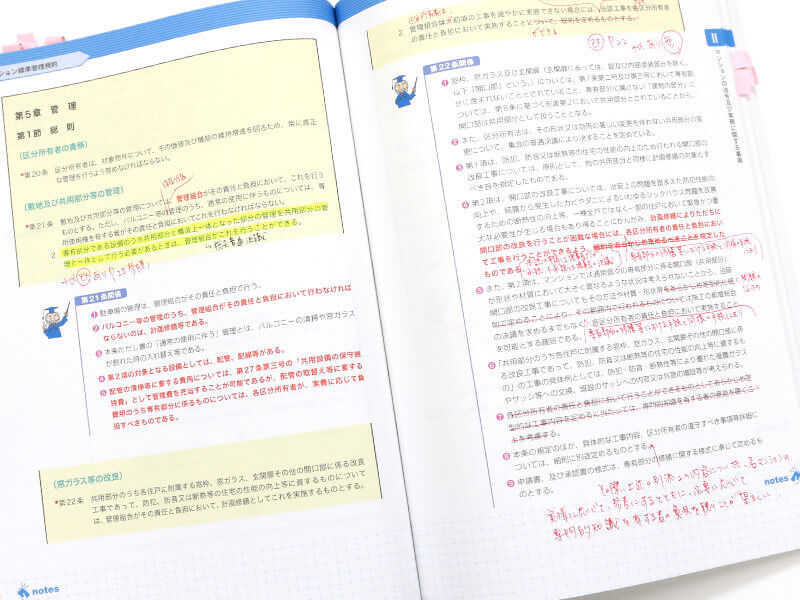 ンション標準管理規約
第5章 管 理
第1節 総 則
(区分所有者の責務)
*第20条 区分所有者は、対象物件について、その価値及び機能の維持増進を図るため、常に適正
な管理を行うよう努めなければならない。
(敷地及び共用部分等の管理)
*第21条 敷地及び共用部分等の管理については、管理組合がその責任と負担において、これを行う
ものとする。ただし、バルコニー等の管理のうち、通常の使用に伴うものについては、専
用使用権を有する者がその責任と負担においてこれを行わなければならない。
2 専有部分である設備のうち共用部分と構造上一体となった部分の管理を共用部分の管
理と一体として行う必要があるときは、管理組合がこれを行うことができる。
第21条関係
① 駐車場の管理は、管理組合がその責任と負担で行う。
② バルコニー等の管理のうち、管理組合がその責任と負担において行わなければ
ならないのは、計画修繕等である。
③ 本条ただし書の「通常の使用に伴う」管理とは、バルコニーの清掃や窓ガラス
が割れた時の入れ替え等である。
④ 第2項の対象となる設備としては、配管、配線等がある。
⑤ 配管の清掃等に要する費用については、第27条第三号の「共用設備の保守維
持費」として管理費を充当することが可能であるが、配管の取替え等に要する
費用のうち専有部分に係るものについては、各区分所有者が、実費に応じて負
担すべきものである。
(窓ガラス等の改良)
*第22条 共用部分のうち各住戸に附属する窓枠、窓ガラス、玄関扉その他の開口部に係る改良
工事であって、防犯、防音又は断熱等の住宅の性能の向上等に資するものについて
は、管理組合がその責任と負担において、計画修繕としてこれを実施するものとする。
notes
2 管理組合は、前項の工事を速やかに実施できない場合には、当該工事を各区分所有者
の責任と負担において実施することについて、細則を定めるものとする。
ができる
P22
第22条関係
① 窓枠、窓ガラス及び玄関扉(玄関扉にあっては、錠及び内部塗装部分を除く。
以下「開口部」という。)については、第7条第二号及び第三号において専有部
分に含まれないこととされていること、専有部分に属さない「建物の部分」に
ついては、第8条に基づく別表第2において共用部分とされていることから、
開口部は共用部分として扱うこととなる。
② また、区分所有法は、その形状又は効用の著しい変更を伴わない共用部分の変
更について、集会の普通決議により決することを定めている。
③ 第1項は、防犯、防音又は断熱等の住宅の性能の向上のため行われる開口部の
改良工事については、原則として、他の共用部分と同様に計画修繕の対象とす
べき旨を規定したものである。
④ 第2項は、開口部の改良工事については、治安上の問題を踏まえた防犯性能の
向上や、結露から発生したカビやダニによるいわゆるシックハウス問題を改善
するための断熱性の向上等、一棟全戸ではなく一部の住戸において緊急かつ重
大な必要性が生じる場合もあり得ることにかんがみ、計画修繕によりただちに
開口部の改良を行うことが困難な場合には、各区分所有者の責任と負担におい
て工事を行うことができるよう、細則をあらかじめ定めるべきことを規定した
ものである。
⑤ また、第2項は、マンションでは通常個々の専有部分に係る開口部(共用部分)
が形状や材質において大きく異なるような状況は考えられないことから、当該
開口部の改良工事についてもその方法や材質・形状等をあらかじめ定型的に細
則で定めることにより、その範囲内で行われるものについては施工の都度総会
の決議を求めるまでもなく、各区分所有者の責任と負担において実施すること
を可能とする趣旨である。
⑥ 「共用部分のうち各住戸に附属する窓枠、窓ガラス、玄関扉その他の開口部に係
る改良工事であって、防犯、防音又は断熱等の住宅の性能の向上等に資するも
の」の工事の具体例としては、防犯・防音・断熱性等により優れた複層ガラス
やサッシ等への交換、既設のサッシへの内窓又は外窓の増設等が考えられる。
⑦ 各区分所有者の責任と負担において行うことができるものとしてあらかじめ定
型的な工事内容を定めるに当たっては、専門的知識を有する者の意見を聴くこ
とを考慮する。
⑧ 本条の規定のほか、具体的な工事内容、区分所有者の遵守すべき事項等詳細に
ついては、細則に別途定めるものとする。
⑨ 申請書、及び承認書の様式は、専有部分の修繕に関する様式に準じて定めるも
のとする。
実情に応じて、参考にするとともに、必要に応じて
専門的知識を有する者の意見を聴くことが望ましい。
notes
Ⅱ
マンションの法令及び実務に関する事項